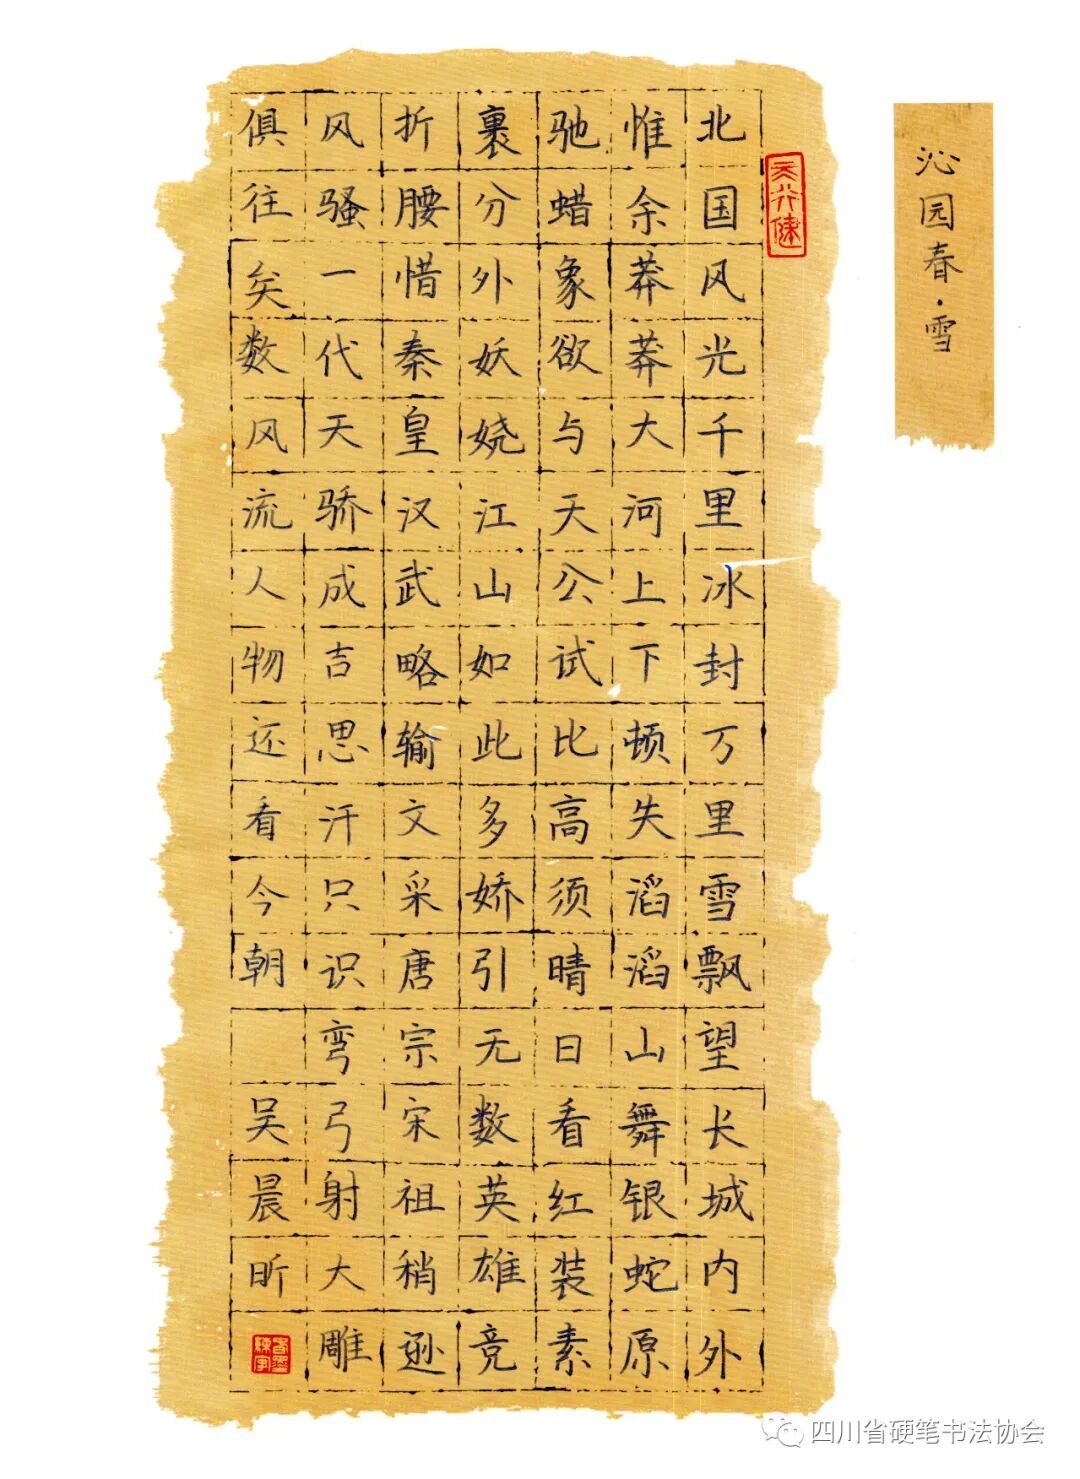 沁园春·雪
天行健
北国风光千里冰封万里雪飘望长城内外
惟余莽莽大河上下顿失滔滔山舞银蛇原
驰蜡象欲与天公试比高须晴日看红装素
裹分外妖娆江山如此多娇引无数英雄竞
折腰惜秦皇汉武略输文采唐宗宋祖稍逊
风骚一代天骄成吉思汗只识弯弓射大雕
俱往矣数风流人物还看今朝 吴晨昕
四川省硬笔书法协会